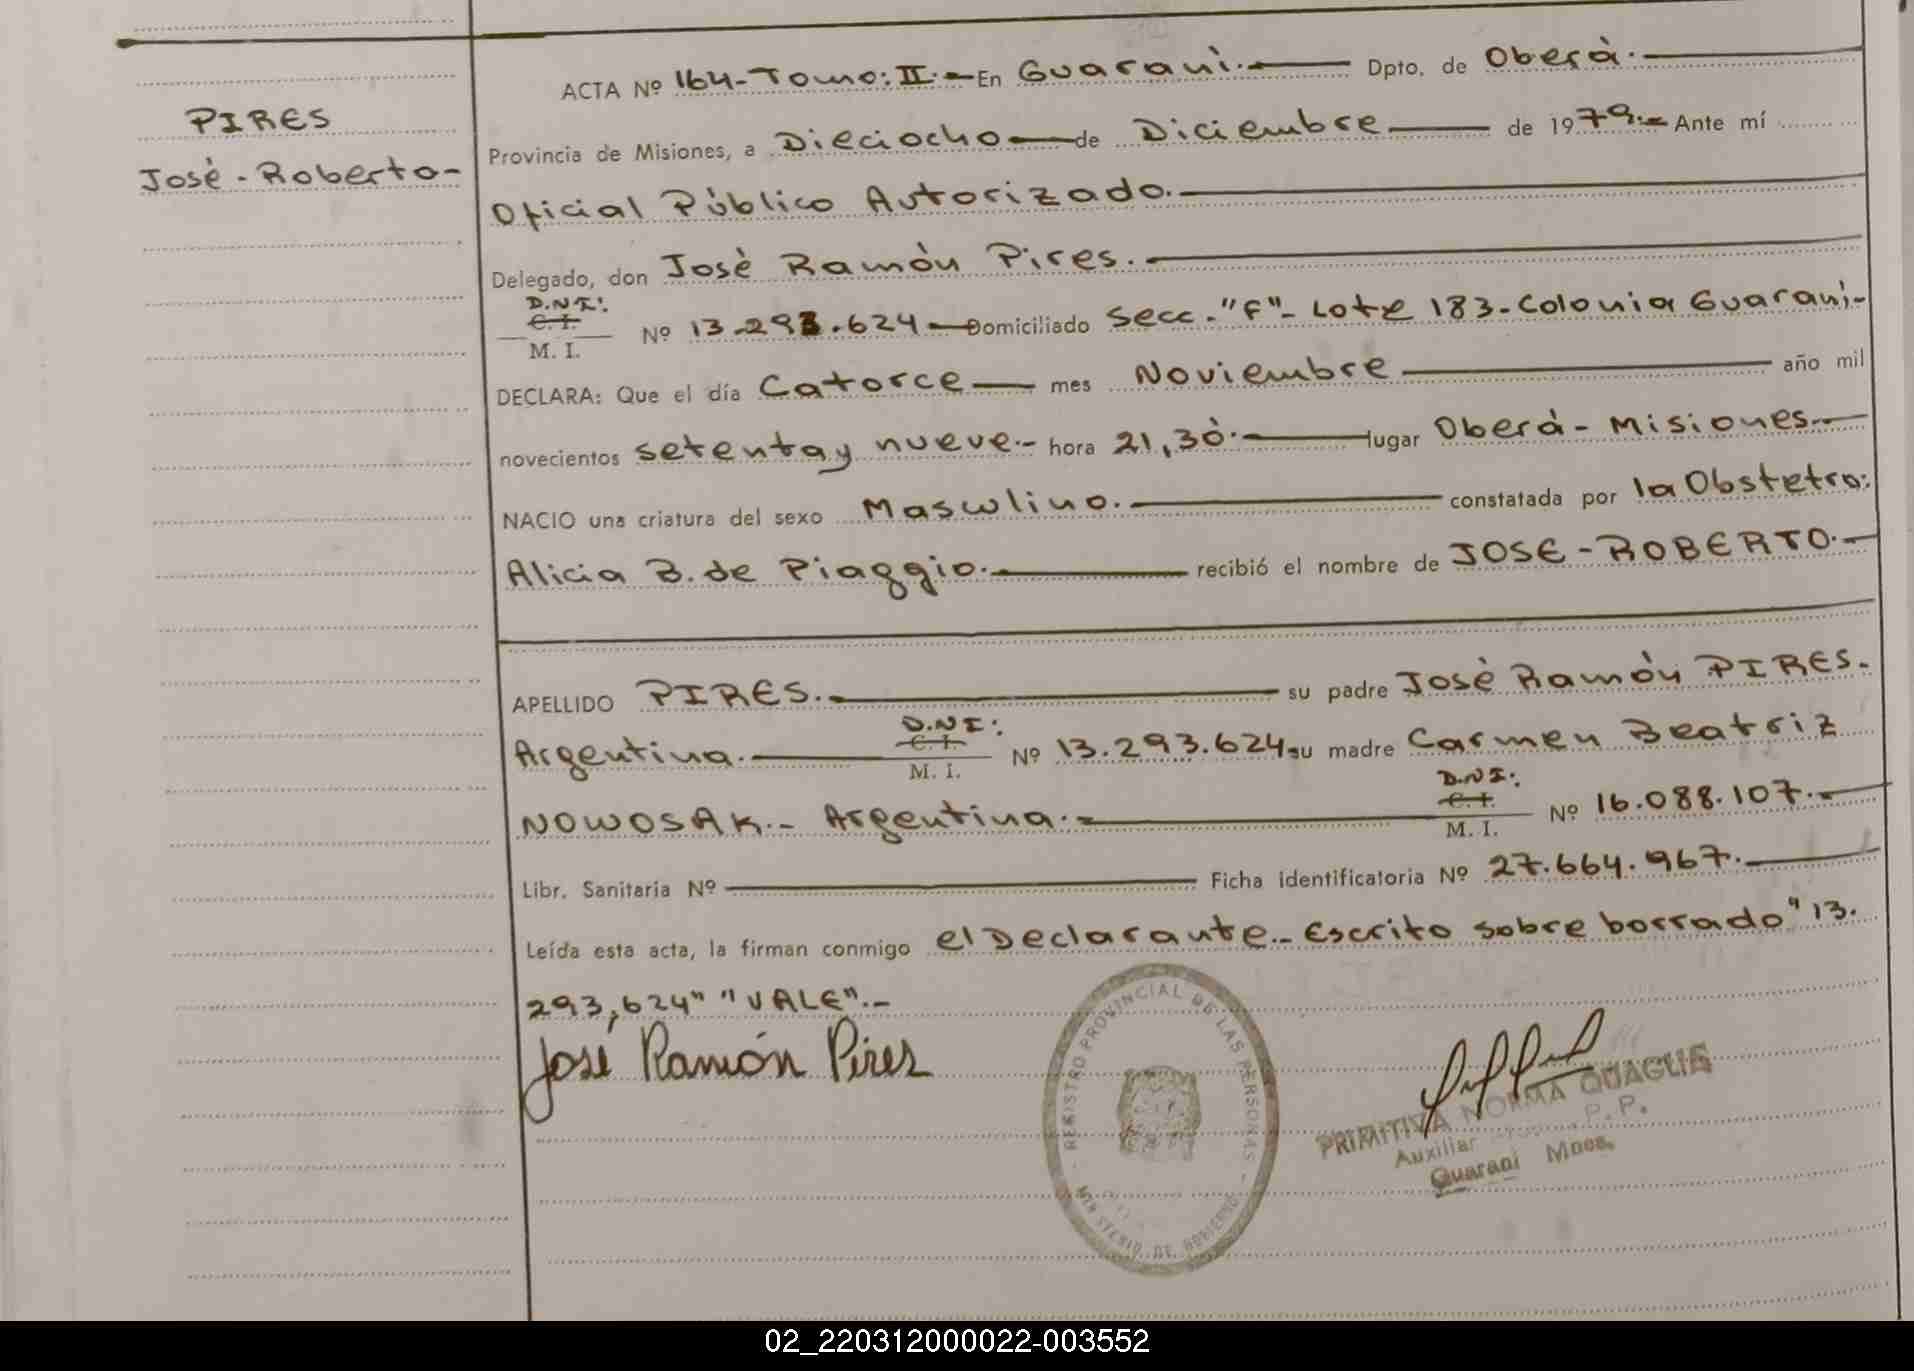 PIRES
José - Roberto -
ACTA Nº 164 - Tomo: II. - En Guaraní. Dpto. de Oberá.
Provincia de Misiones, a Dieciocho de Diciembre de 1979. - Ante mí
Oficial Público Autorizado.
Delegado, don José Ramón Pires.
D.N.I:
C. I.
M. I. Nº 13.293.624 Domiciliado Secc. "F" - Lote 183 - Colonia Guaraní -
DECLARA: Que el día Catorce mes Noviembre año mil
novecientos setenta y nueve. - hora 21,30. lugar Oberá - Misiones.
NACIO una criatura del sexo Masculino. constatada por la Obstetra:
Alicia B. de Piaggio. recibió el nombre de JOSE - ROBERTO. -
APELLIDO PIRES. su padre José Ramón PIRES.
Argentina. D.N.I: C. I. M. I. Nº 13.293.624 su madre Carmen Beatriz
NOWOSAK. - Argentina. - D.N.I: C. I. M. I. Nº 16.088.107.
Libr. Sanitaria Nº Ficha identificatoria Nº 27.664.967.
Leída esta acta, la firman conmigo el Declarante. - Escrito sobre borrado "13.
293,624" "VALE". -
José Ramón Pires
REGISTRO PROVINCIAL DE LAS PERSONAS
MINISTERIO DE GOBIERNO
PRIMITIVA NORMA QUAGLIA
Auxiliar P. P.
Guaraní Mnes.
02_220312000022-003552